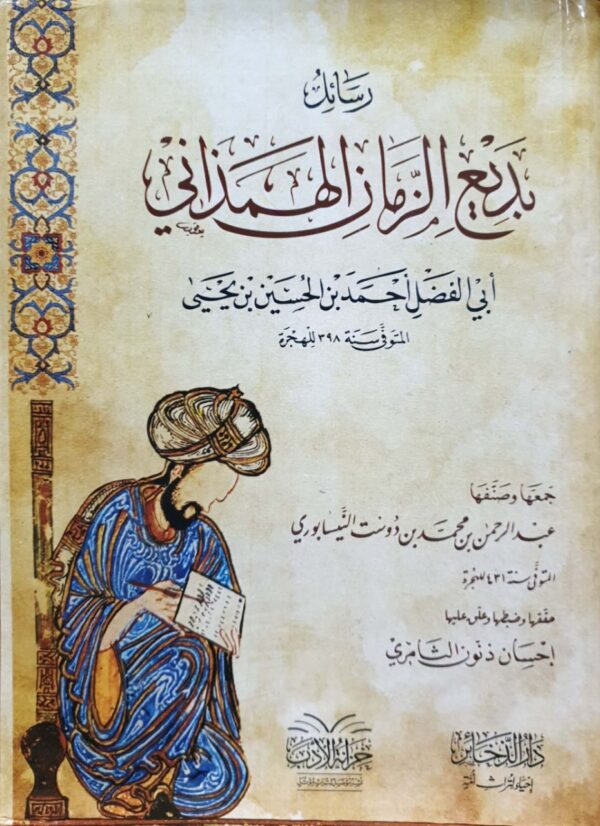 رَسَائِلُ
بَدِيْعِ الزَّمَانِ الهَمَذَانِي
أبي الفَضْلِ أحْمَدَ بْنِ الحُسَيْنِ بْنِ يَحْيَى
المتوفَّى سَنَة ٣٩٨ لِلْهِجْرَة
جَمَعَهَا وَصَنَّفَهَا
عبد الرحمن بن محمد بن دُوست النَّيسابوري
المتوفَّى سنة ٤٣١ للهجرة
حققها وضبطها وعلق عليها
إحسان ذنون الثامري
دَارُ الذَّخَائِر
إحياء لتراث أمة
خزانة الأدب